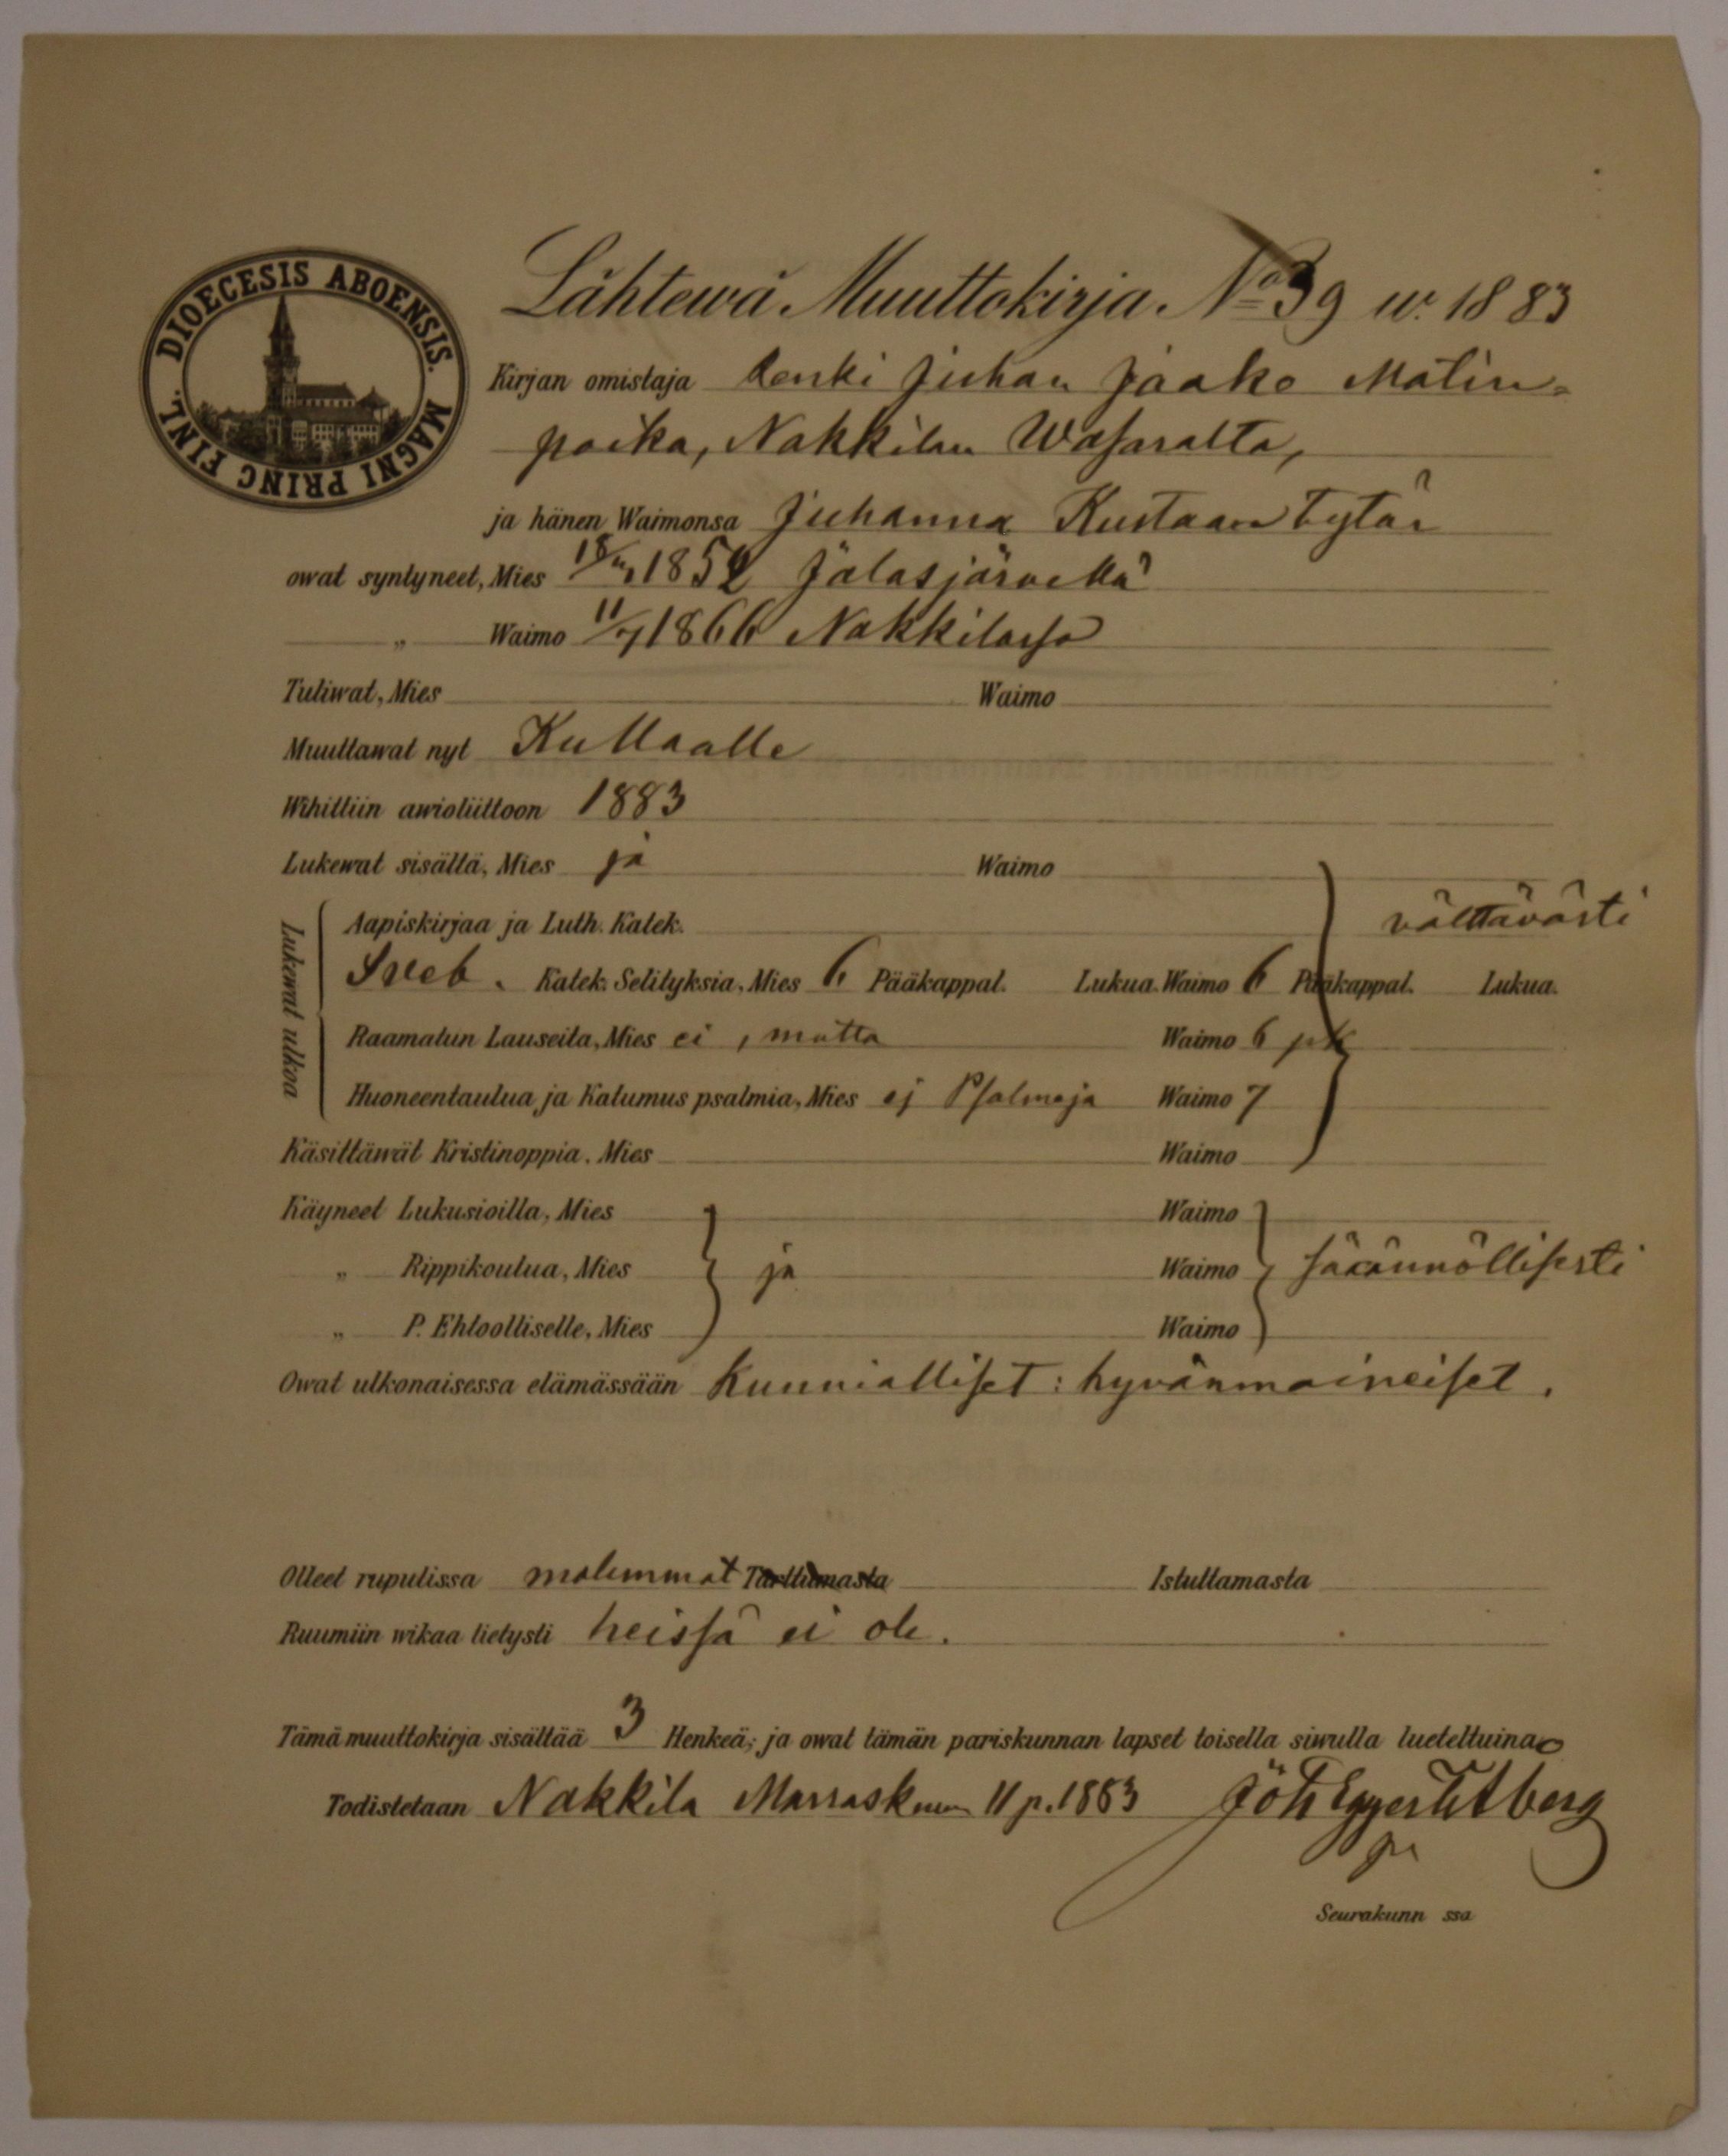 DIOECESIS ABOENSIS. MAGNI PRINC FINL.
Lähtewä Muuttokirja No 39 w. 1883
Kirjan omistaja Renki Juhan Jaako Matin-
poika, Nakkilan Wasaralta,
ja hänen Waimonsa Juhanna Kustaan tytär
owat syntyneet, Mies 1852 Jalasjärvellä
„ Waimo 11/7 1866 Nakkilassa
Tuliwat, Mies Waimo
Muuttawat nyt Kullaalle
Wihittiin awioliittoon 1883
Lukewat sisältä, Mies ja Waimo
Lukewat ulkoa
Aapiskirjaa ja Luth. Katek. välttävästi
Sveb. Katek. Selityksia, Mies 6 Pääkappal. Lukua. Waimo 6 Pääkappal. Lukua.
Raamatun Lauseita, Mies ei, mutta Waimo 6 pk
Huoneentaulua ja Katumus psalmia, Mies ej Psalmeja Waimo 7
Käsittäwät Kristinoppia. Mies Waimo
Käyneet Lukusioilla, Mies Waimo
„ Rippikoulua, Mies ja Waimo säännöllisesti
„ P. Ehtoolliselle, Mies Waimo
Owat ulkonaisessa elämässään Kunnialliset: hyvänmaineiset.
Olleet rupulissa molemmat Tarttumasta Istuttamasta
Ruumiin wikaa tietysti heissä ei ole.
Tämä muuttokirja sisältää 3 Henkeä; ja owat tämän pariskunnan lapset toisella siwulla lueteltuina
Todistetaan Nakkila Marraskuun 11 p. 1883
Seurakunn ssa